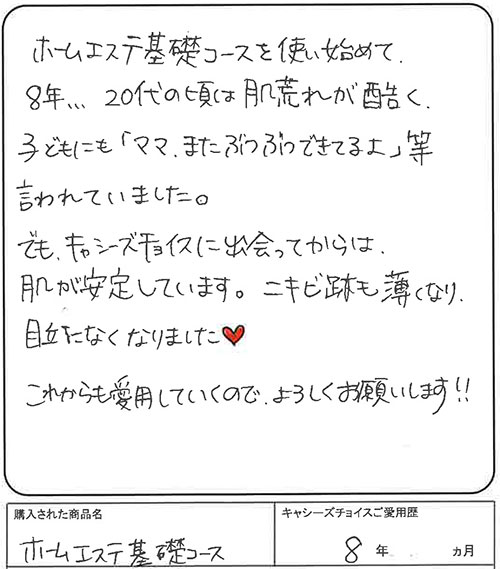 ホームエステ基礎コースを使い始めて、
8年... 20代の頃は肌荒れが酷く、
子どもにも「ママ、またぶつぶつできてるよ」等
言われていました。
でも、キャシーズチョイスに出会ってからは、
肌が安定しています。ニキビ跡も薄くなり、
目立たなくなりました♥
これからも愛用していくので、よろしくお願いします!!
購入された商品名
ホームエステ基礎コース
キャシーズチョイスご愛用歴
8 年 カ月